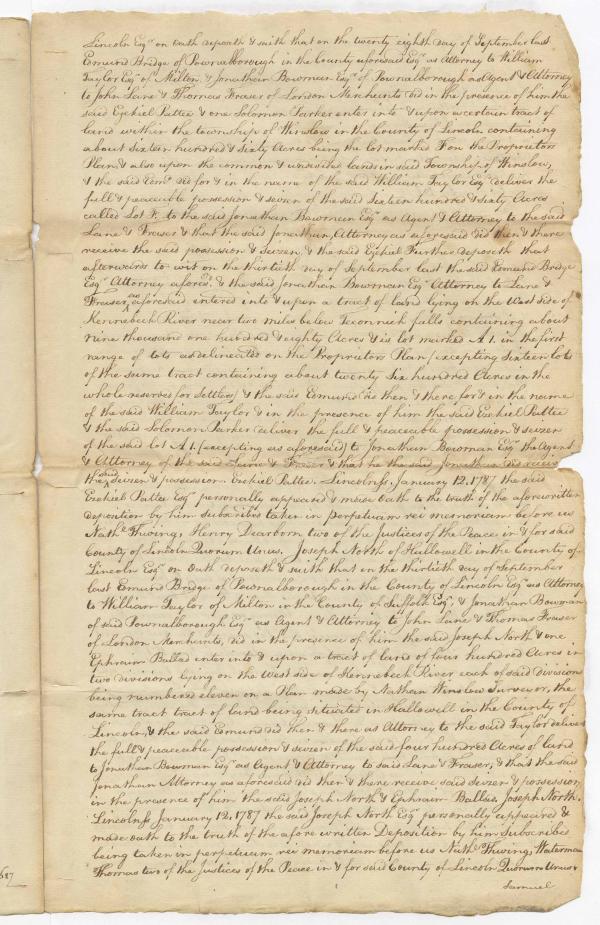 Lincoln Esqr on oath deposeth & saith that on the twenty eighth day of September last
Edmund Bridge of Pownalborough in the County aforesaid Esqr as Attorney to William
Taylor Esqr of Milton & Jonathan Bowman Esqr of Pownalborough as Agent & Attorney
to John Lane & Thomas Fraser of London Merchants did in the presence of him the
said Ezekiel Pattee & one Solomon Parker enter into & upon a certain tract of
land within the township of Winslow in the County of Lincoln containing
about sixteen hundred & sixty Acres being the lot marked F on the Proprietors
Plan, & also upon the common & undivided lands in said Township of Winslow,
& the said Edmd did for & in the name of the said William Taylor Esqr deliver the
full & peaceable possession & seizen of the said sixteen hundred & sixty Acres
called Lot F. to the said Jonathan Bowman Esqr as Agent & Attorney to the said
Lane & Fraser & that the said Jonathan, Attorney as aforesaid did then & there
receive the said possession & seizen, & the said Ezekiel further deposeth that
afterwards to wit on the thirtieth day of September last the said Edmund Bridge
Esqr Attorney aforesd, & the said Jonathan Bowman Esqr Attorney to Lane &
Fraser, as aforesaid entered into & upon a tract of land lying on the West side of
Kennebeck River near two miles below Teconnick falls containing about
nine thousand one hundred & eighty Acres & is lot marked A 1. in the first
range of lots as delineated on the Proprietors Plan (excepting sixteen lots
of the same tract containing about twenty six hundred Acres in the
whole reserves for settlers) & the said Edmund did then & there for & in the name
of the said William Taylor & in the presence of him the said Ezekiel Pattee
& the said Solomon Parker deliver the full & peaceable possession & seizen
of the said lot A 1. (excepting as aforesaid) to Jonathan Bowman Esqr the Agent
& Attorney of the said Lane & Fraser & that he the said Jonathan did receive
the said seizen & possession. Ezekiel Pattee. Lincolnss, January 12. 1787 the said
Ezekiel Pattee Esqr personally appeared & made oath to the truth of the aforewritten
deposition by him subscribed taken in perpetuam rei memoriam before us
Nathl Thwing, Henry Dearborn two of the Justices of the Peace in & for said
County of Lincoln Quorum Unus. Joseph North of Hallowell in the County of
Lincoln Esqr on Oath deposeth & saith that on the thirtieth day of September
last Edmund Bridge of Pownalborough in the County of Lincoln Esqr as Attorney
to William Taylor of Milton in the County of Suffolk Esqr, & Jonathan Bowman
of said Pownalborough Esqr as Agent & Attorney to John Lane & Thomas Fraser
of London Merchants, did in the presence of him the said Joseph North & one
Ephraim Ballad enter into & upon a tract of land of four hundred Acres in
two divisions lying on the West side of Kennebeck River each of said divisions
being numbered eleven on a Plan made by Nathan Winslow Surveyor, the
same tract tract of land being situated in Hallowell in the County of
Lincoln, & the said Edmund did then & there as Attorney to the said Taylor deliver
the full & peaceable possession & seizen of the said four hundred Acres of land
to Jonathan Bowman Esqr as Agent & Attorney to said Lane & Fraser, & that the said
Jonathan Attorney as aforesaid did then & there receive said seizen & possession
in the presence of him the said Joseph North & Ephraim Ballad. Joseph North.
Lincolnss January 12. 1787 the said Joseph North Esqr personally appeared &
made oath to the truth of the afore written Deposition by him Subscribed
being taken in perpetuum rei memoriam before us Nathl Thwing, Waterman
Thomas two of the Justices of the Peace in & for said County of Lincoln Quorum Unus
Samuel